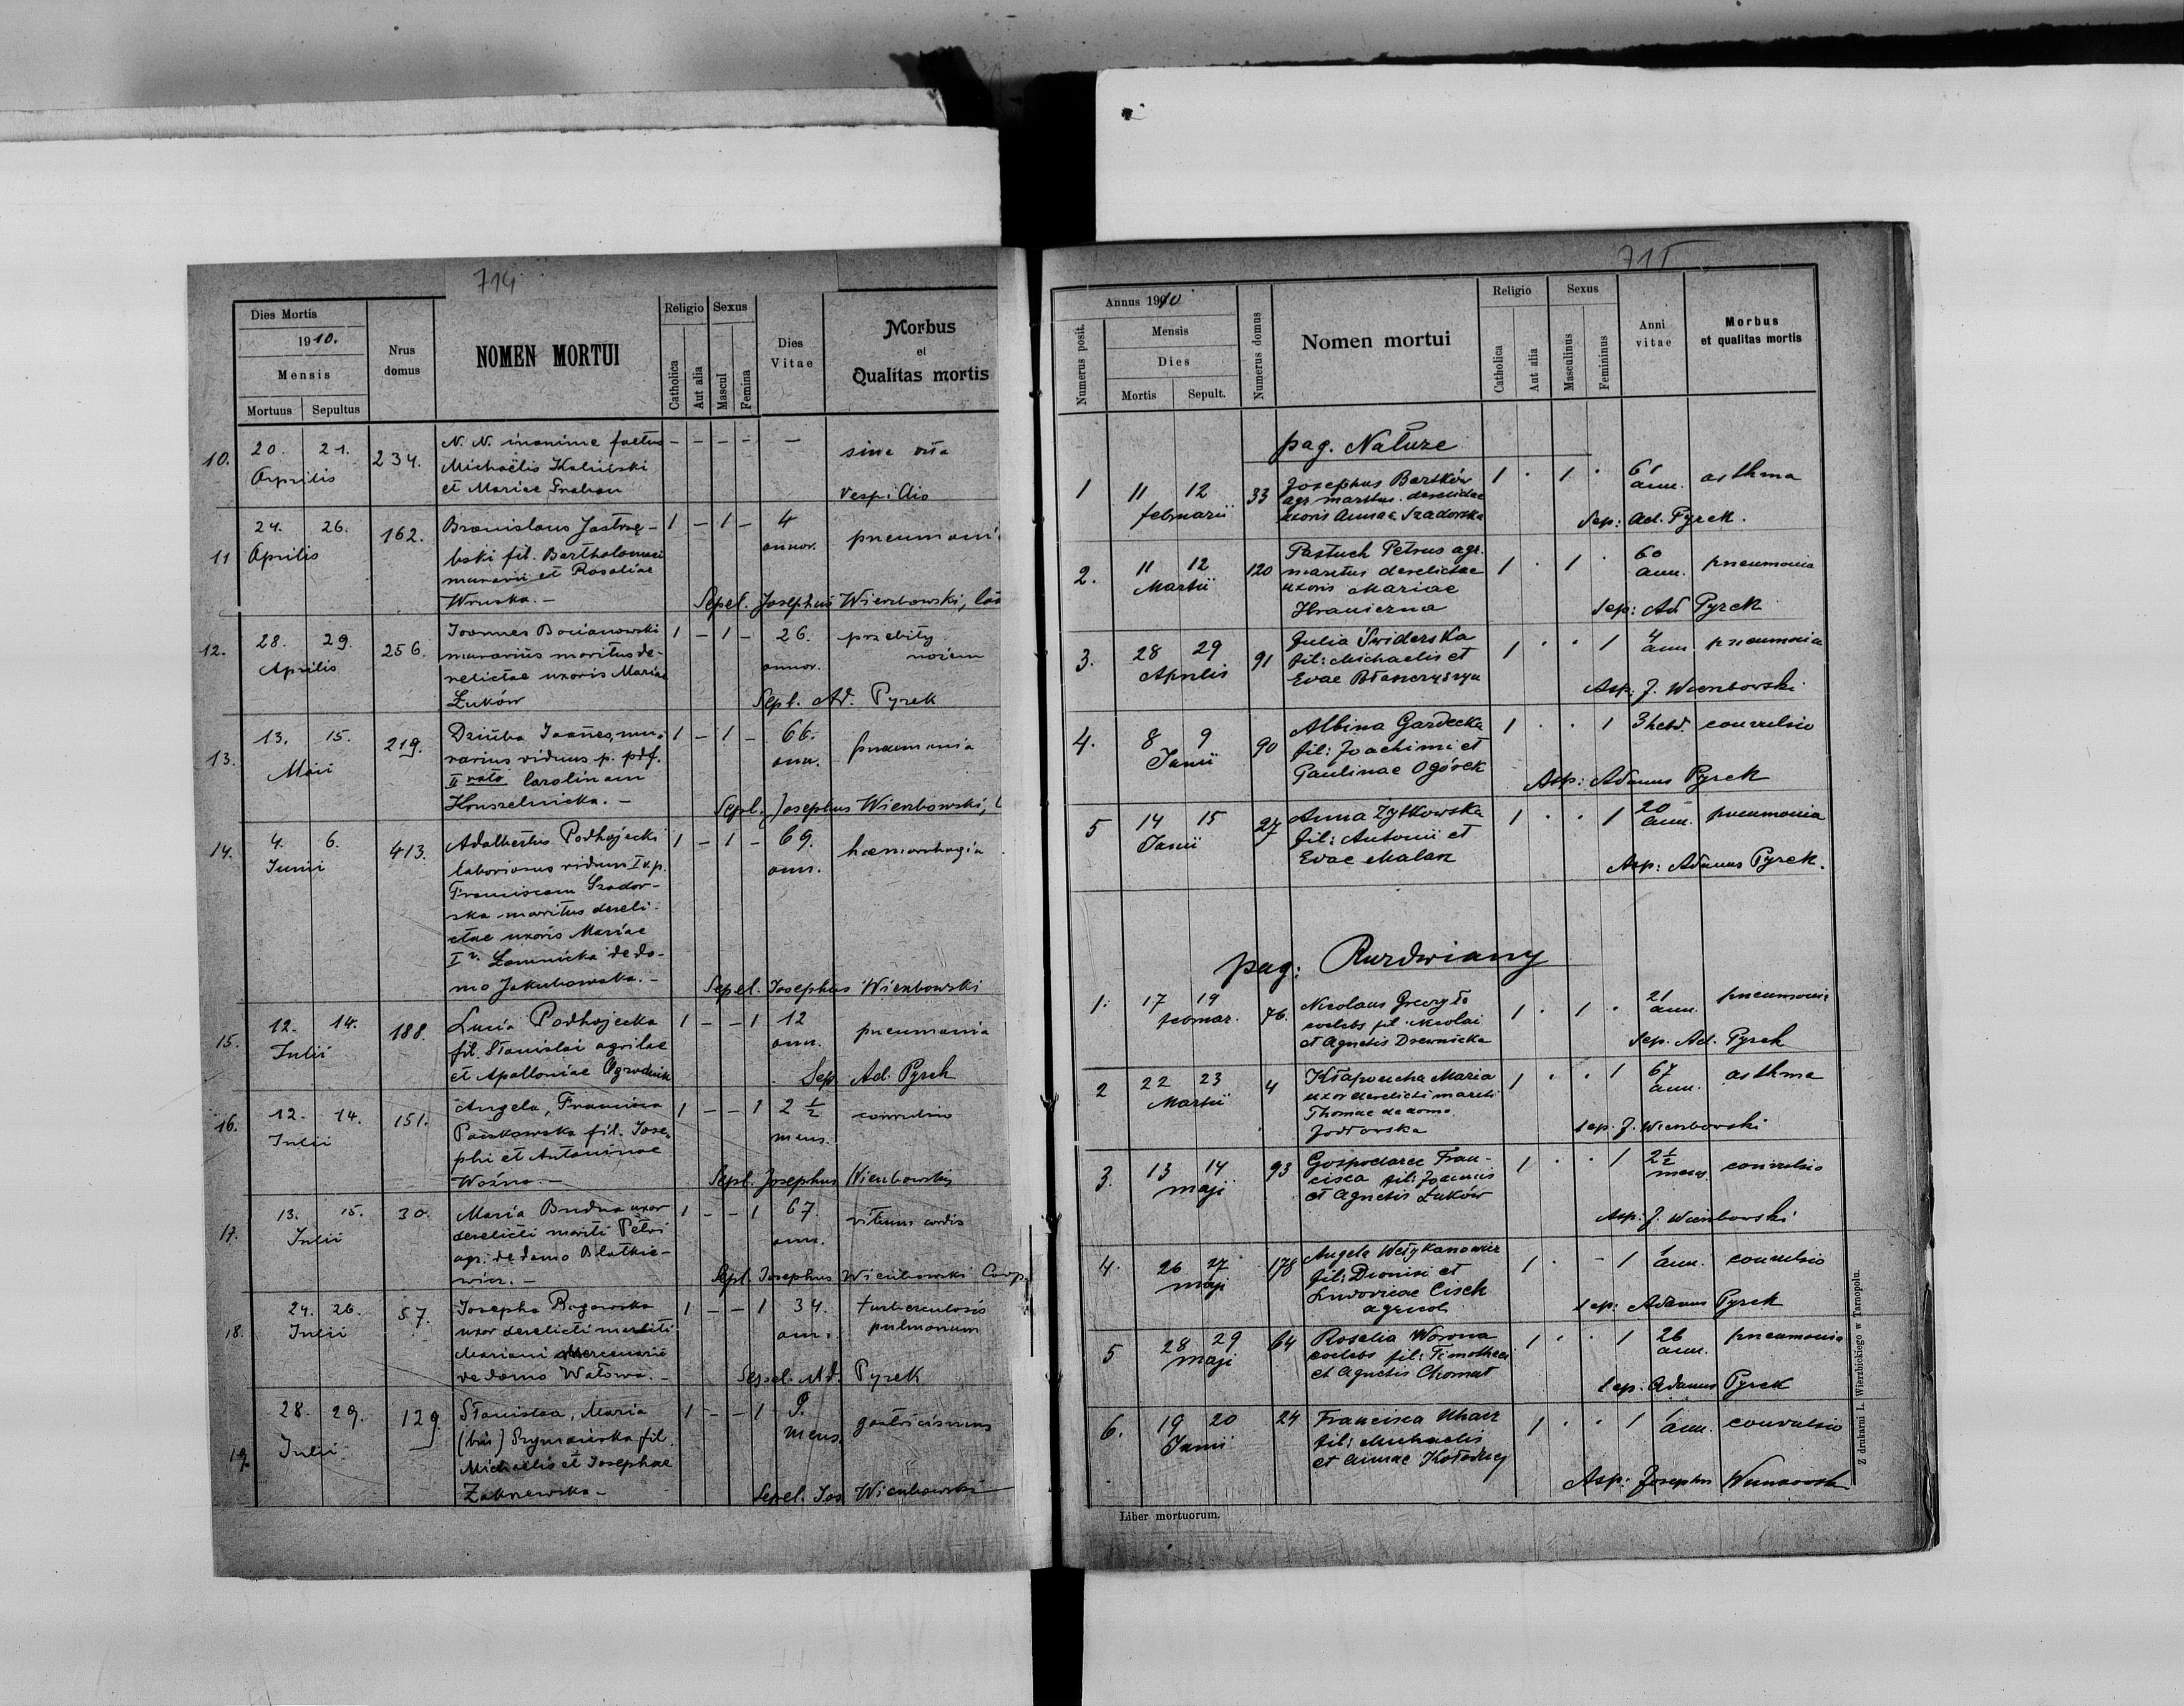 714
Dies Mortis
1910.
Mensis
Mortuus Sepultus
Nrus domus
NOMEN MORTUI
Religio Sexus
Catholica Aut alia Mascul Femina
Dies Vitae
Morbus
et
Qualitas mortis
10. 20. 21. 234. N. N. inanime foetus – – – – – sine vita
Aprilis Michaëlis
et Mariae Vespillio
11 24. 26. 162. Bronislaus Jastrzę- 1 – 1 – 4 pneumoni
Aprilis bski fil. Bartholomaei annor.
murarii et Rosaliae
Wruska. – Sepel. Josephus Wierzbowski,
12. 28. 29. 256. Joannes Bocianowski 1 – 1 – 26. przebity
Aprilis murarius maritus de- annor. nożem
relictae uxoris Mariae
Łuków Sepl. Ad. Pyrek
13. 13. 15. 219. Dziuba Joannes, mu- 1 – 1 – 66. pneumonia
Maii rarius viduus p. pdf. ann.
II voto Carolinam
Sepl. Josephus Wierzbowski,
14. 4. 6. 413. Adalbertus Podhojecki 1 – 1 – 69. haemorrhagia
Junii laboriosus viduus I v. p. ann.
Franciscam Szador-
ska maritus dereli-
ctae uxoris Mariae
I v. Łomnicka de do-
mo Jakubowska. – Sepel. Josephus Wierzbowski
15. 12. 14. 188. Lucia Podhojecka 1 – – 1 12 pneumonia
Julii fil. Stanislai agricolae ann.
et Apolloniae Ogrodnik Sep. Ad. Pyrek
16. 12. 14. 151. Angela, Francisca 1 – – 1 2 ½ convulsio
Julii Paszkowska fil. Jose- mens.
phi et Antoninae
Woźna. – Sepl. Josephus Wierzbowski
17. 13. 15. 30. Maria Budna uxor 1 – – 1 67. vitium cordis
Julii derelicti mariti Petri ann.
agr. de domo Blatkie-
wicz. – Sepl. Josephus Wierzbowski Coop.
18. 24. 26. 57. Josepha Rogowska 1 – – 1 34. tuberculosis
Julii uxor derelicti mariti ann. pulmonum
Mariani mercenarii
de domo Watowa. – Sepel. Ad. Pyrek
19. 28. 29. 129. Stanislaa, Maria 1 – – 1 9. gastricismus
Julii (bin) Szymańska fil. mens.
Michaëlis et Josephae
Zakrzewska – Sepel. Jos Wierzbowski
715
Annus 1910
Numerus posit.
Mensis
Dies
Mortis Sepult.
Numerus domus
Nomen mortui
Religio Sexus
Catholica Aut alia Masculinus Femininus
Anni vitae
Morbus
et qualitas mortis
pag. Natuże
1 11 12 33 Josephus Bartków 1 . 1 . 61 asthma
februarii agr. maritus derelictae ann.
uxoris Annae Szadorska Sep: Ad. Pyrek.
2. 11 12 120 Pastuch Petrus agr. 1 . 1 . 60 pneumonia
Martii maritus derelictae ann.
uxoris Mariae
Hraniczna Sep: Ad Pyrek
3. 28 29 91 Julia Świderska 1 . . 1 4 pneumonia
Aprilis fil: Michaelis et ann
Evae Błaszczyszyn Asp: J. Wierzbowski
4. 8 9 90 Albina Gardecka 1 . . 1 3 hebd. convulsio
Junii fil: Joachimi et
Paulinae Ogórek Asp: Adamus Pyrek
5 14 15 27 Anna Żytkowska 1 . . 1 20 pneumonia
Junii fil: Antonii et ann.
Evae Malak Asp: Adamus Pyrek.
pag: Rurdwiany
1. 17 19 76. Nicolaus 1 . 1 . 21 pneumonia
februar. coelebs fil. Nicolai ann.
et Agnetis Drewnicka Sep. Ad. Pyrek
2 22 23 4 Kłapoucha Maria 1 . . 1 67 asthma
Martii uxor derelicti mariti ann.
Thomae de domo
Jodłowska Sep. J. Wierzbowski
3. 13 14 93 Gospodarec Fran- 1 . . 1 2½ convulsio
maji cisca fil: Joannis mens.
et Agnetis Łuków
Asp: J. Wierzbowski
4. 26 27 178 Angela Wełykanowicz 1 . – 1 1 convulsio
maji fil: Dionisi et ann.
Ludovicae Cisek
agricol. Sep: Adamus Pyrek
5 28 29 64 Rosalia Worona 1 . . 1 26 pneumonia
maji coelebs fil: Timothaei ann.
et Agnetis Chomat
Sep. Adamus Pyrek
6. 19 20 24 Francisca Uhacz 1 . . 1 1 convulsio
Junii fil: Michaelis ann.
et Annae Kołodziej
Asp: Josephus
Liber mortuorum.
Z drukarni L. Wierzbickiego w Tarnopolu.